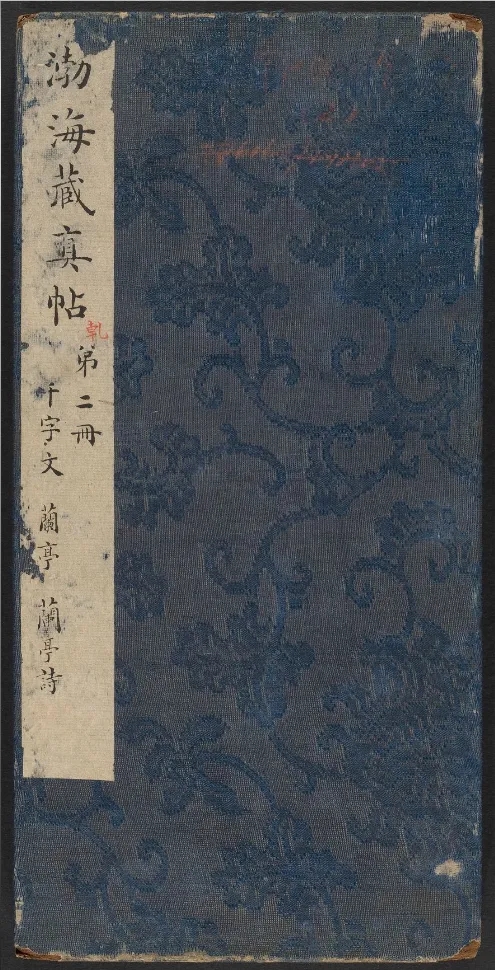 渤海藏真帖
乹
第二冊
千字文 蘭亭 蘭亭詩